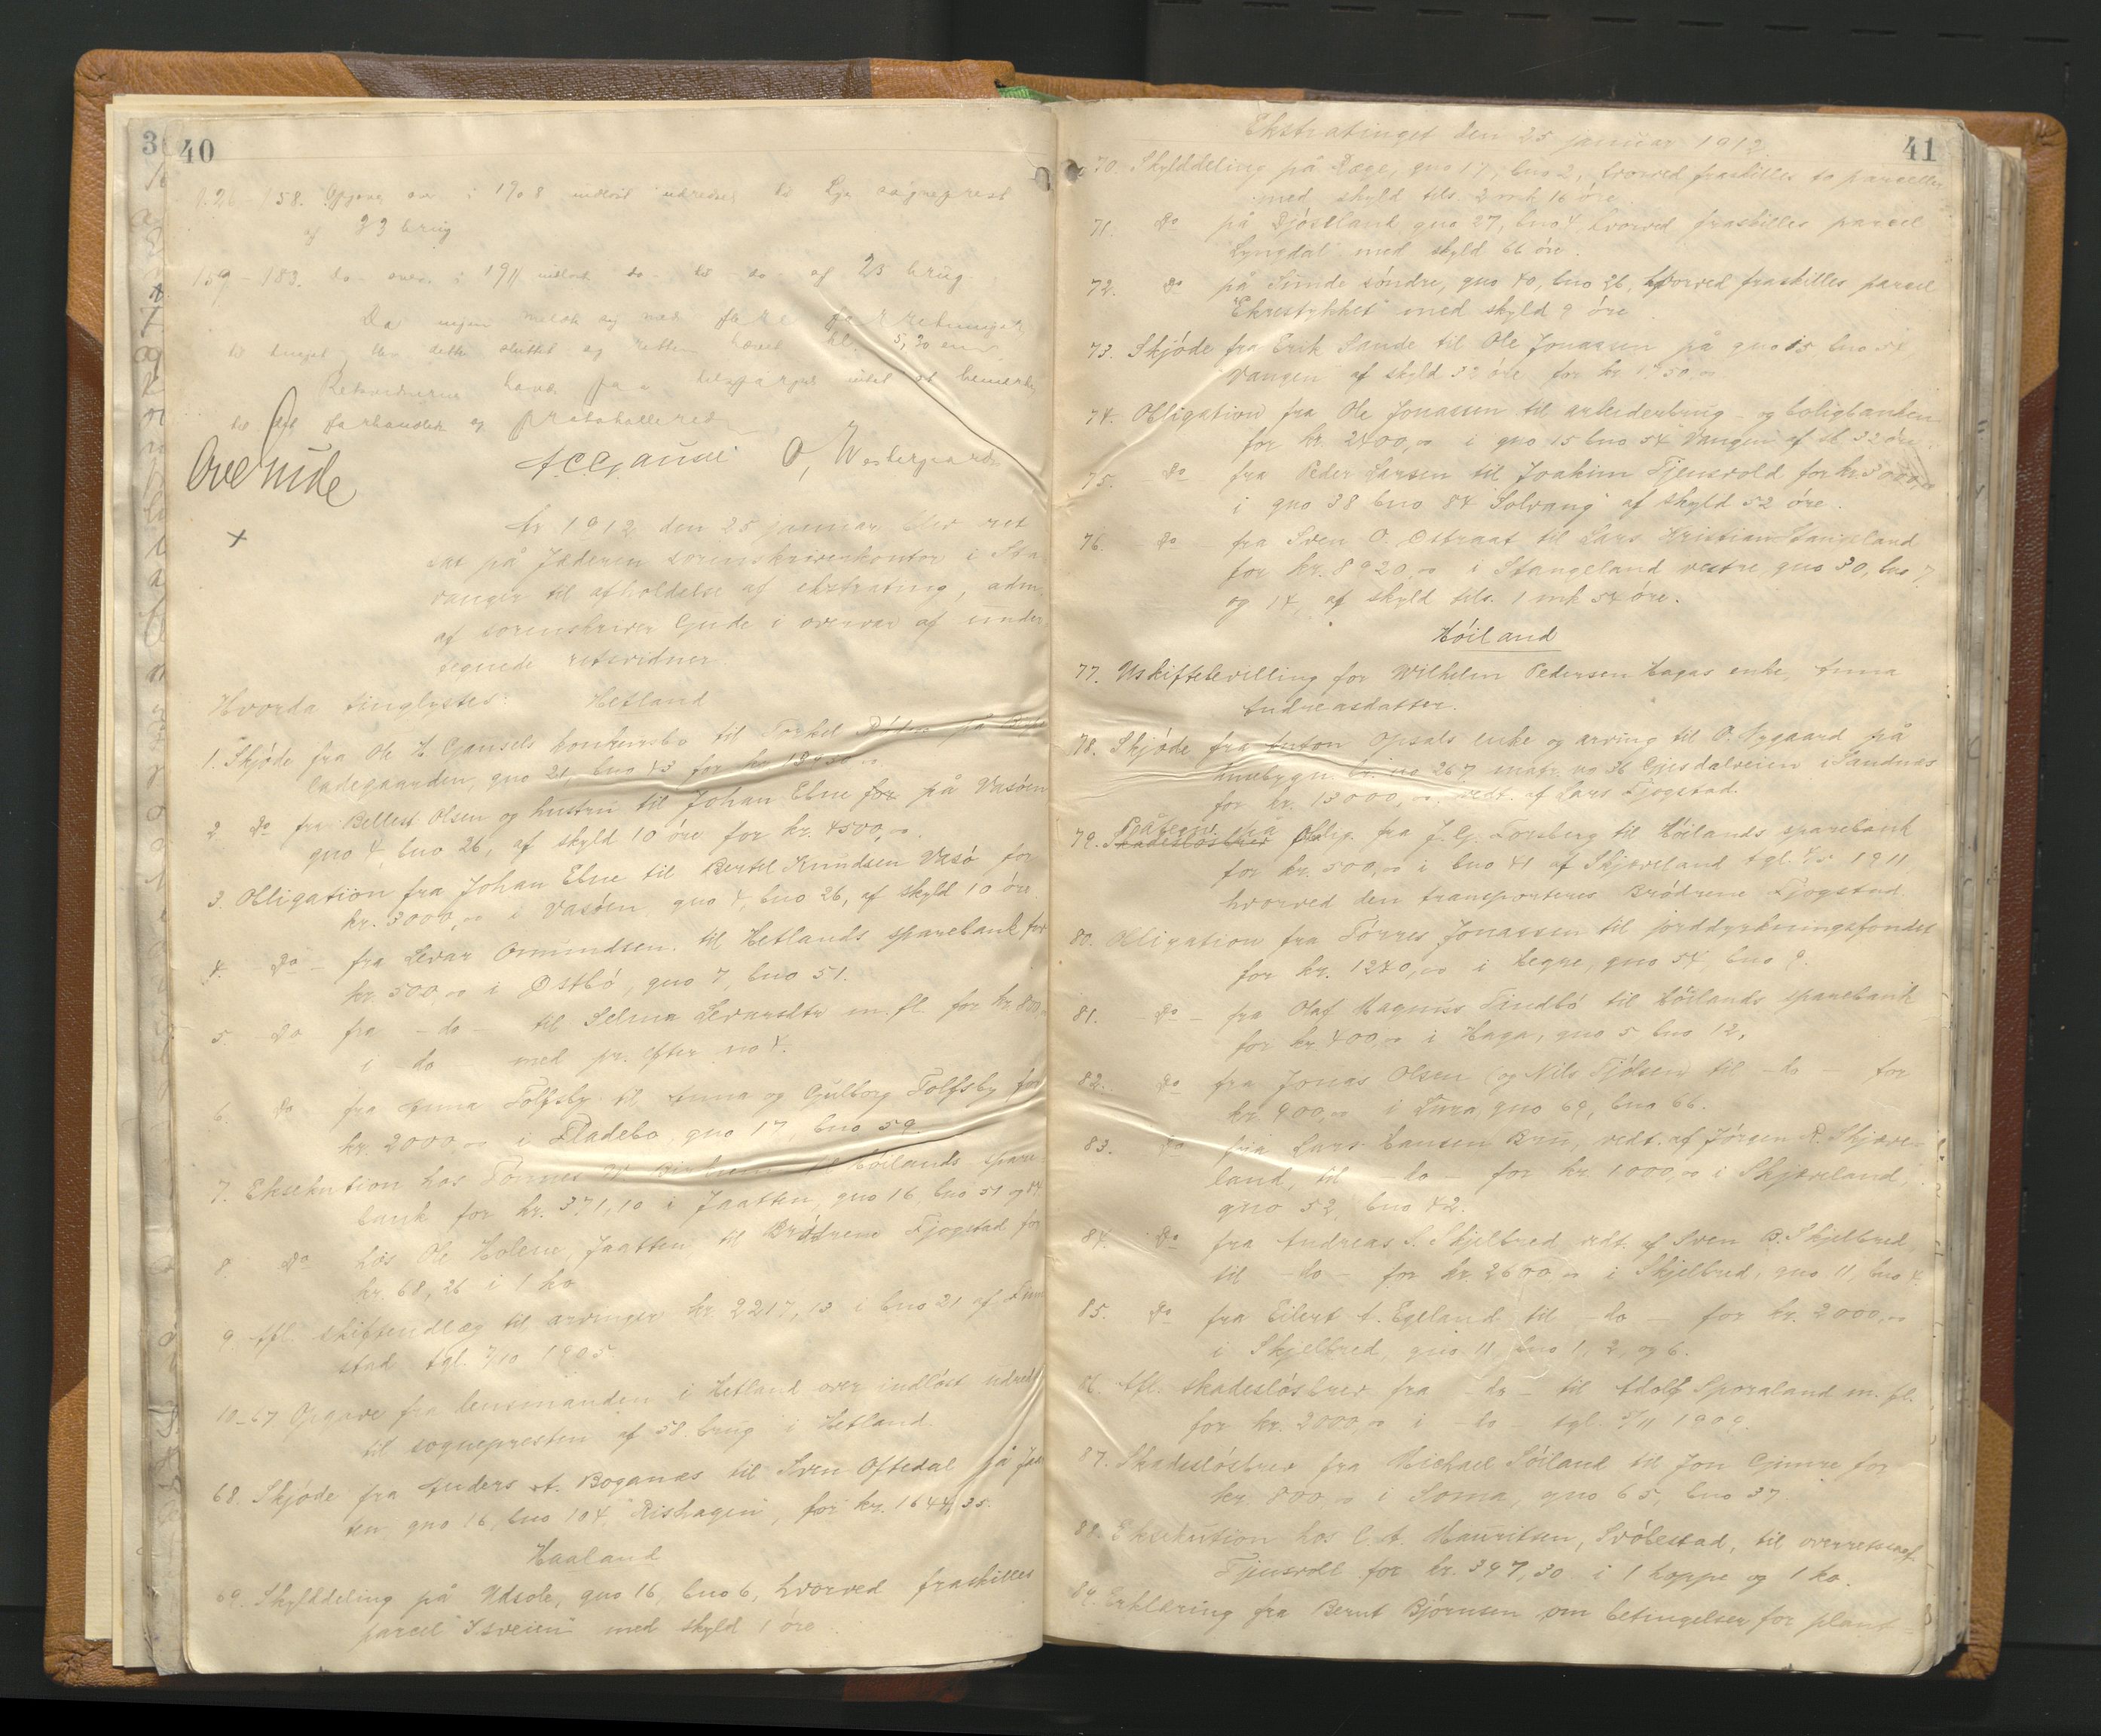 40
158. Opgave over i 1908 indløst udredsel til Lye sogneprest
af 33 brug
159-183. do- over i 1911 indløst do- til do- af 23 brug.
Da ingen meldte sig med flere forretninger
til tinget, blev dette sluttet og retten hævet kl. 5,30 em
Retsvidnerne havde paa tilspørgsel intet at bemerke
til det forhandlede og protokollerede
Ove Gude A. C. Gausel O, Westergaard
+
År 1912 den 25 januar blev ret
sat på Jæderen sorenskriverkontor i Sta-
vanger til afholdelse af ekstrating, adm.
af sorenskriver Gude i overvær af under-
tegnede retsvidner.
Hvorda tinglystes: Hetland
1. Skjøde fra Ole H Gausels konkursbo til Torkel på
ladegaarden, gno 21, bno 43 for kr.
2 Do fra Bellest Olsen og hustru til Johan Elne for på Vasöen
gno 4, bno 26, af skyld 10 öre for kr. 4500,00.
3. Obligation fra Johan Elne til Bertel Knudsen Vasö for
kr. 3000,00 i Vasöen gno 4, bno 26, af skyld 10 öre
4. - Do - fra Levar Omundsen til Hetlands sparebank for
kr. 500,00 i Østbö, gno 7, bno 51.
5. Do fra - do - til Selma Levarsdtr m. fl. for kr. 800,00
i do - med pr. efter no 4.
6. Do fra Anna Tolfsby til Anna og Gulborg Tolfsby for
kr. 2000,00 i Bladebo, gno 17, bno 59.
7. Eksekution hos Törres til Höilands spare-
bank for kr. 371,10 i Jaatten, gno 16, bno 51 og
8. Do hos Ole Holene, Jaatten til Brödrene Fjogstad for
kr. 68,26 i 1 ko
9. Afl. skifteudlæg til arvinger kr 2217,13 i bno 21 af
stad tgl. 7/10 1905.
10-67 Opgave fra lensmanden i Hetland over indlöst udredsel
til sognepresten af 58 brug i Hetland.
68. Skjöde fra Anders A. Boganæs til Sven Oftedal på Jaat-
ten, gno 16, bno 104 "Rishagen", for kr. 1644,35.
Haaland
69. Skylddeling på Udsole, gno 16, bno 6, hvorved fraskilles
parcel "Isveien" med skyld 1 öre.
Ekstratinget den 25 januar 1912.
41
70. Skylddeling på Ræge, gno 17, bno 2, hvorved fraskilles to parceller
med skyld tils. 2 mk 16 öre.
71. Do på Njöstland gno 27, bno 4 hvorved fraskilles parcel
"Lyngdal" med skyld 66 öre.
72. Do på Sunde söndre, gno 40, bno 26, hvorved fraskilles parcel
"Ekrestykket" med skyld 9 öre.
73. Skjöde fra Erik Sande til Ole Jonassen på gno 15 bno 54,
"Vangen" af skyld 32 öre for kr. 1750,00
74. Obligation fra Ole Jonassen til arbeiderbrug- og boligbanken
for kr. 2400,00 i gno 15 bno 54 "Vangen" af sk 32 öre.
75. - Do - fra Peder Larsen til Joakim Tjensvold for kr. 3000,00
i gno 38 bno 84 "Solvang" af skyld 52 öre.
76. - Do - fra Sven O. Ostraat til Lars Kristian Stangeland
for kr. 8920,00 i Stangeland vestre gno 30, bno 7
og 14, af skyld tils. 1 mk 54 öre.
Höiland
77. Uskiftebevilling for Wilhelm Pedersen Hagas enke, Anna
Andreasdatter.
78. Skjöde fra Anton Opsals enke og arving til O. Nygaard på
husebygn. br. no 267 matr. no 36 Gjesdalveien i Sandnæs
for kr. 13000,00, vedt. af Lars Fjogstad.
79. Skadeslösbrev Påtegn. på Oblig. fra J. G. Forsberg til Höilands sparebank
for kr. 500,00 i bno 41 af Skjæveland tgl. 1/5 1911,
hvorved den transporteres Brödrene Fjogstad.
80. Obligation fra Törres Jonassen til jorddyrkningsfondet
for kr. 1240,00 i Hegre, gno 54, bno 9.
81. - Do - fra Olaf Magnus Lindbö til Höilands sparebank
for kr. 400,00 i Haga, gno 5 bno 12,
82. Do fra Jonas Olsen (og Nils Tjölsen) til - do - for
kr. 900,00 i Lura, gno 69, bno 66.
83. Do fra Lars Hansen Bru, vedt. af Jörgen R. Skjæve-
land, til - do - for kr. 1000,00 i Skjæveland,
gno 52, bno 42.
84. Do fra Andreas S. Skjelbred vedt. af Sven B. Skjelbred,
til - do - for kr. 2600,00 i Skjelbred, gno 11, bno 4.
85. Do fra Eilert A. Egeland til - do - for kr. 2000,00
i Skjelbred, gno 11, bno 1, 2, og 6.
86. Afl. skadeslösbrev fra - do - til Adolf Sporaland m. fl.
for kr. 2000,00 i - do - tgl. 5/11 1909.
87. Skadeslösbrev fra Michael Söiland til Jon Gjimre for
kr. 800,00 i Soma, gno 65, bno 37.
88. Eksekution hos C. A. Mauritsen, Svölestad, til overretssagf.
Tjensvoll for kr. 397,30 i 1 hoppe og 1 ko.
89. Erklæring fra Bernt Bjørnsen om betingelser for plant-